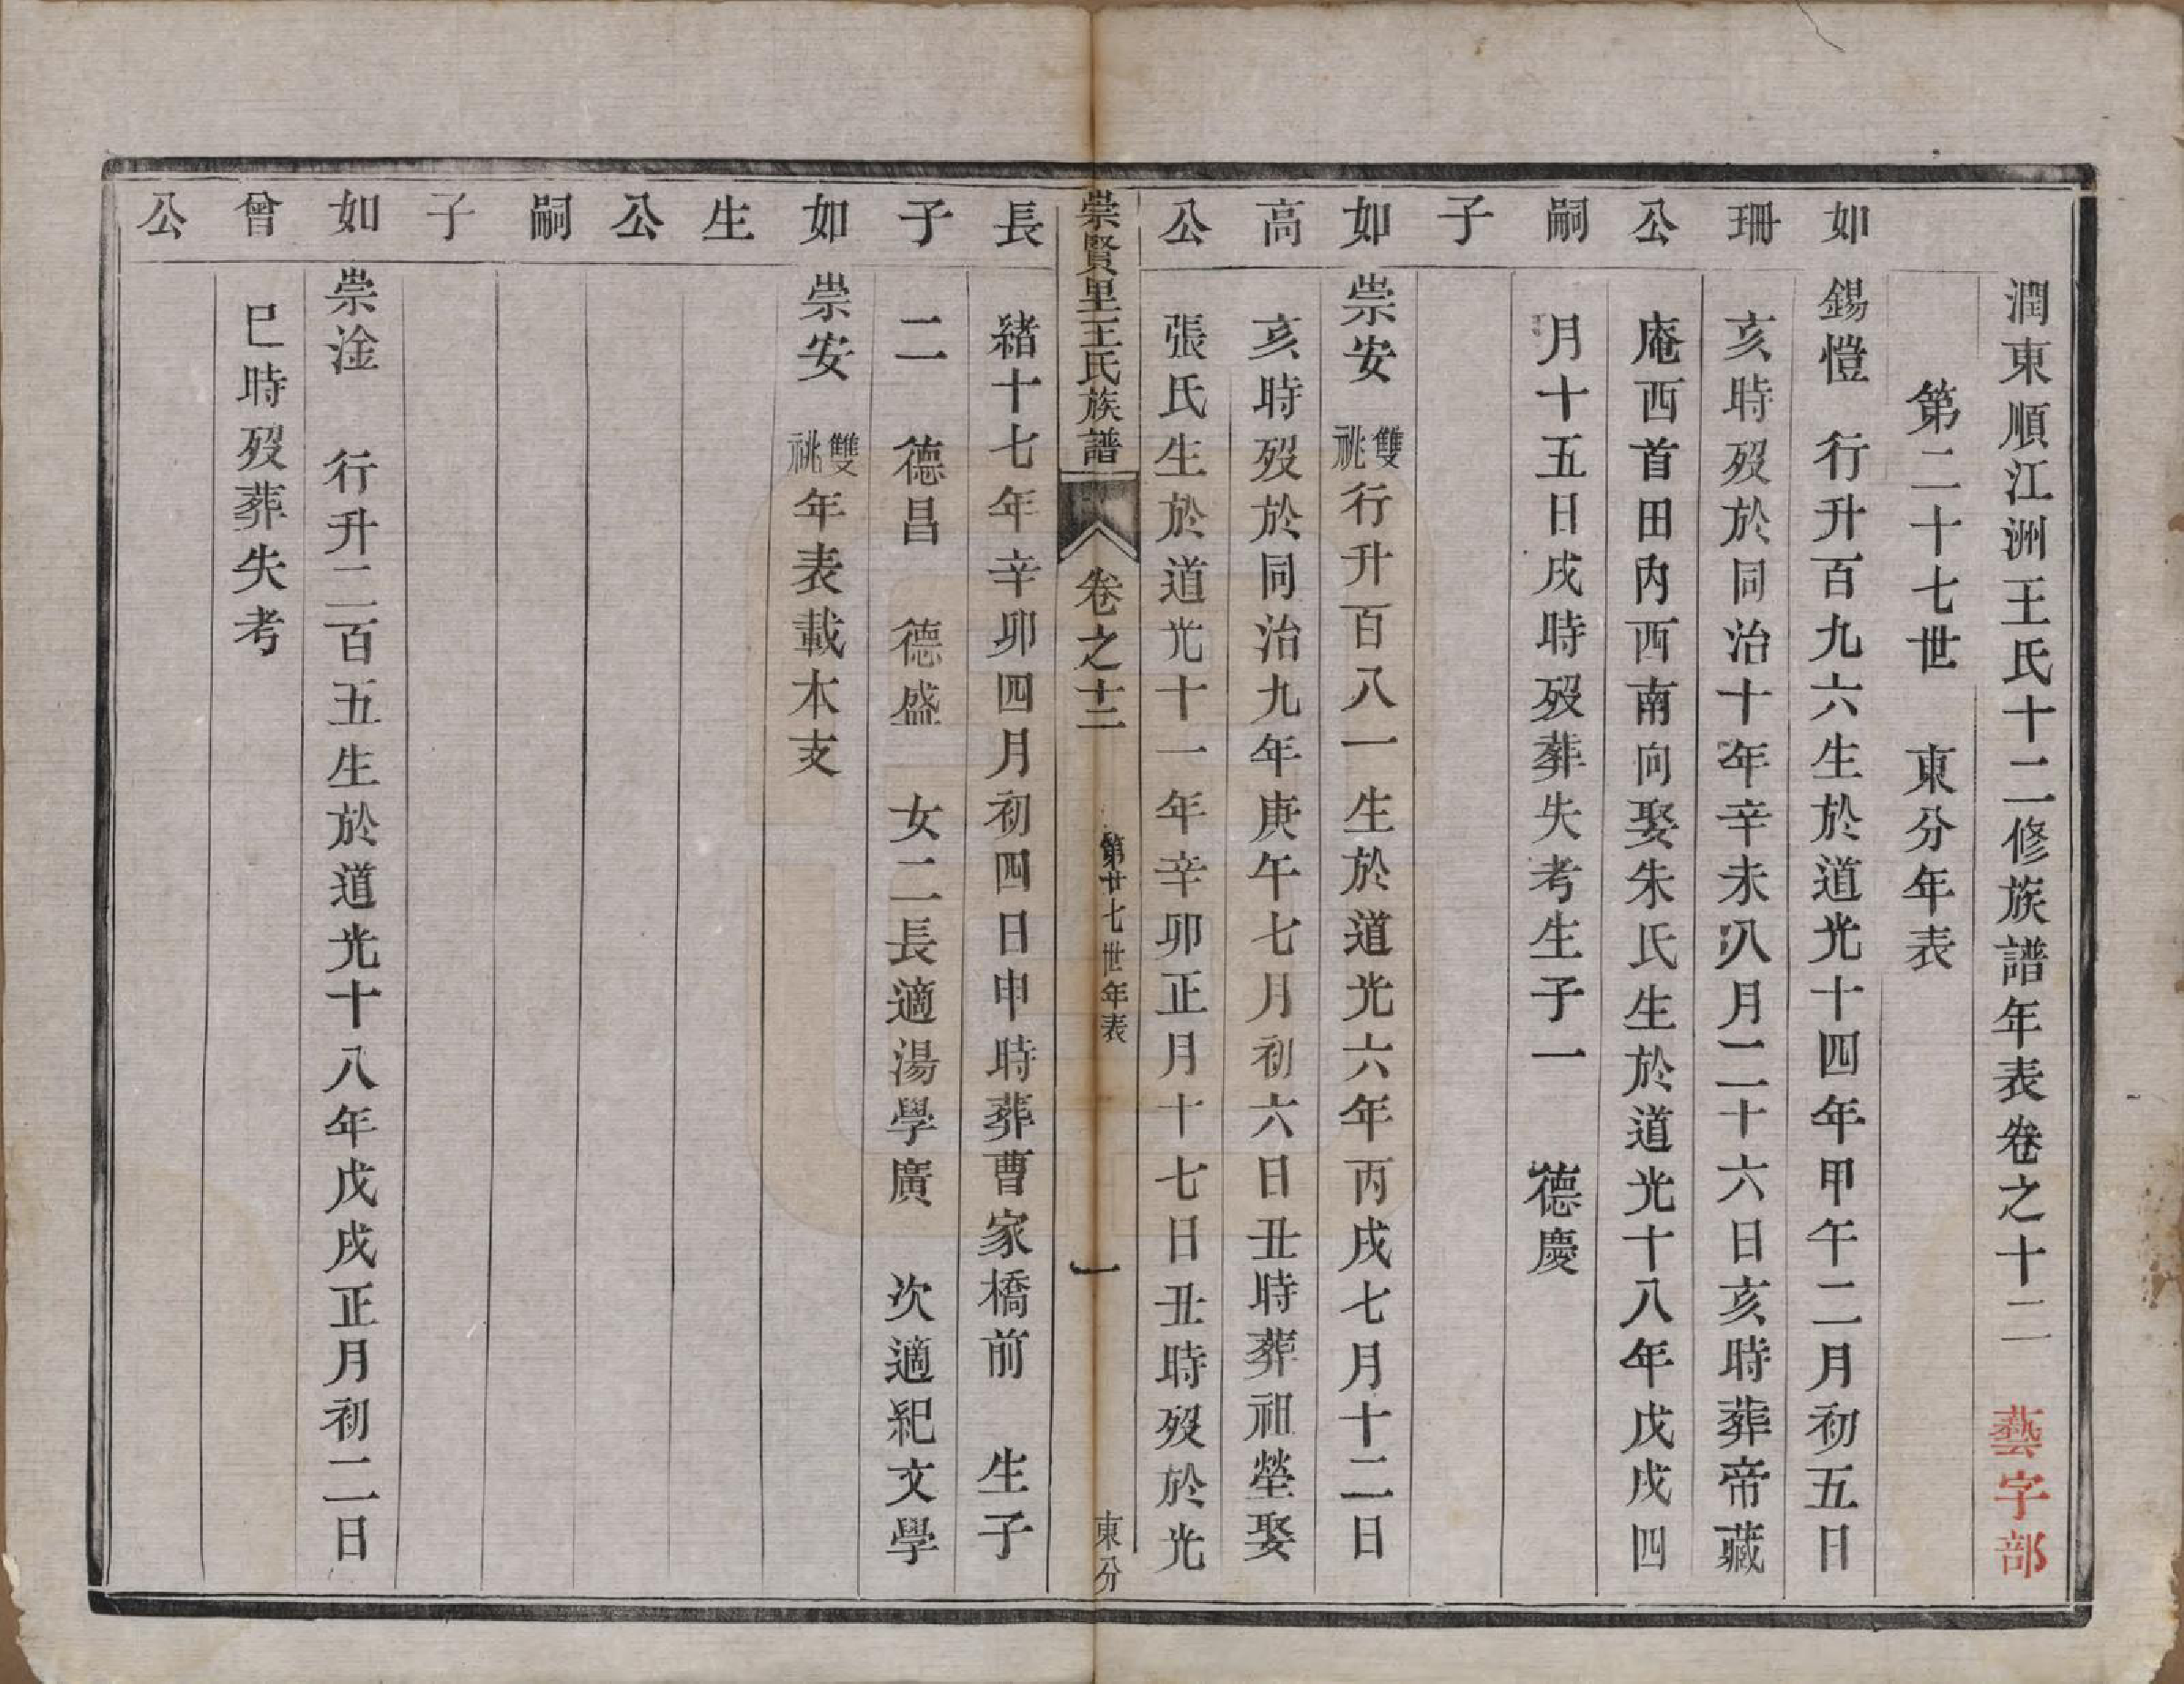 潤東順江洲王氏十二修族譜年表卷之十二 藝字部
第二十七世 東分年表
如 錫愷 行升百九六生於道光十四年甲午二月初五日
珊 亥時歿於同治十年辛未八月二十六日亥時葬帝藏
公 庵西首田內西南向娶朱氏生於道光十八年戊戌四
嗣 月十五日戌時歿葬失考生子一 德慶
子
如 崇安 雙祧 行升百八一生於道光六年丙戌七月十二日
高 亥時歿於同治九年庚午七月初六日丑時葬祖塋娶
公 張氏生於道光十一年辛卯正月十七日丑時歿於光
崇賢里王氏族譜 卷之十二 第廿七世年表 一 東分
長 緒十七年辛卯四月初四日申時葬曹家橋前 生子
子 二 德昌 德盛 女二長適湯學廣 次適紀文學
如 崇安 雙祧 年表載本支
生
公
嗣
子
如 崇淦 行升二百五生於道光十八年戊戌正月初二日
曾 巳時歿葬失考
公